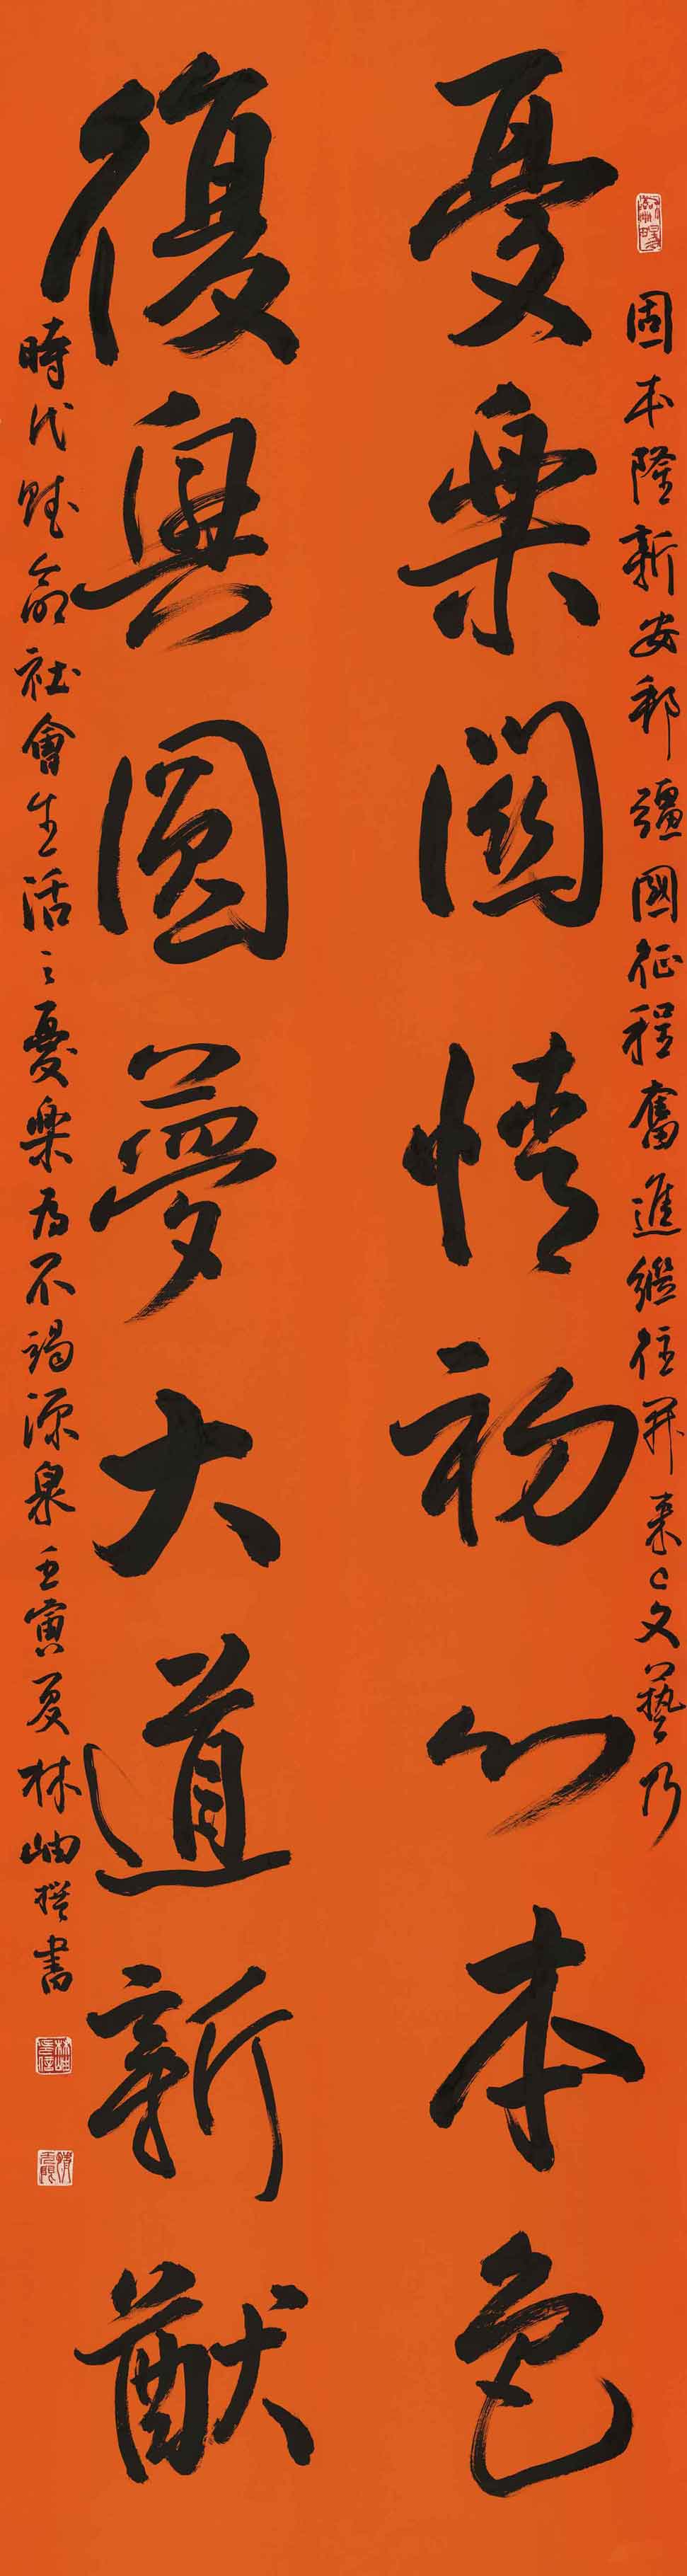 固本隆新安邦彊國征程奮進繼往開来文藝乃
憂樂關情初心本色
復興圓夢大道新猷
時代賦命社會生活之憂樂為不竭源泉壬寅夏林岫撰書
林岫